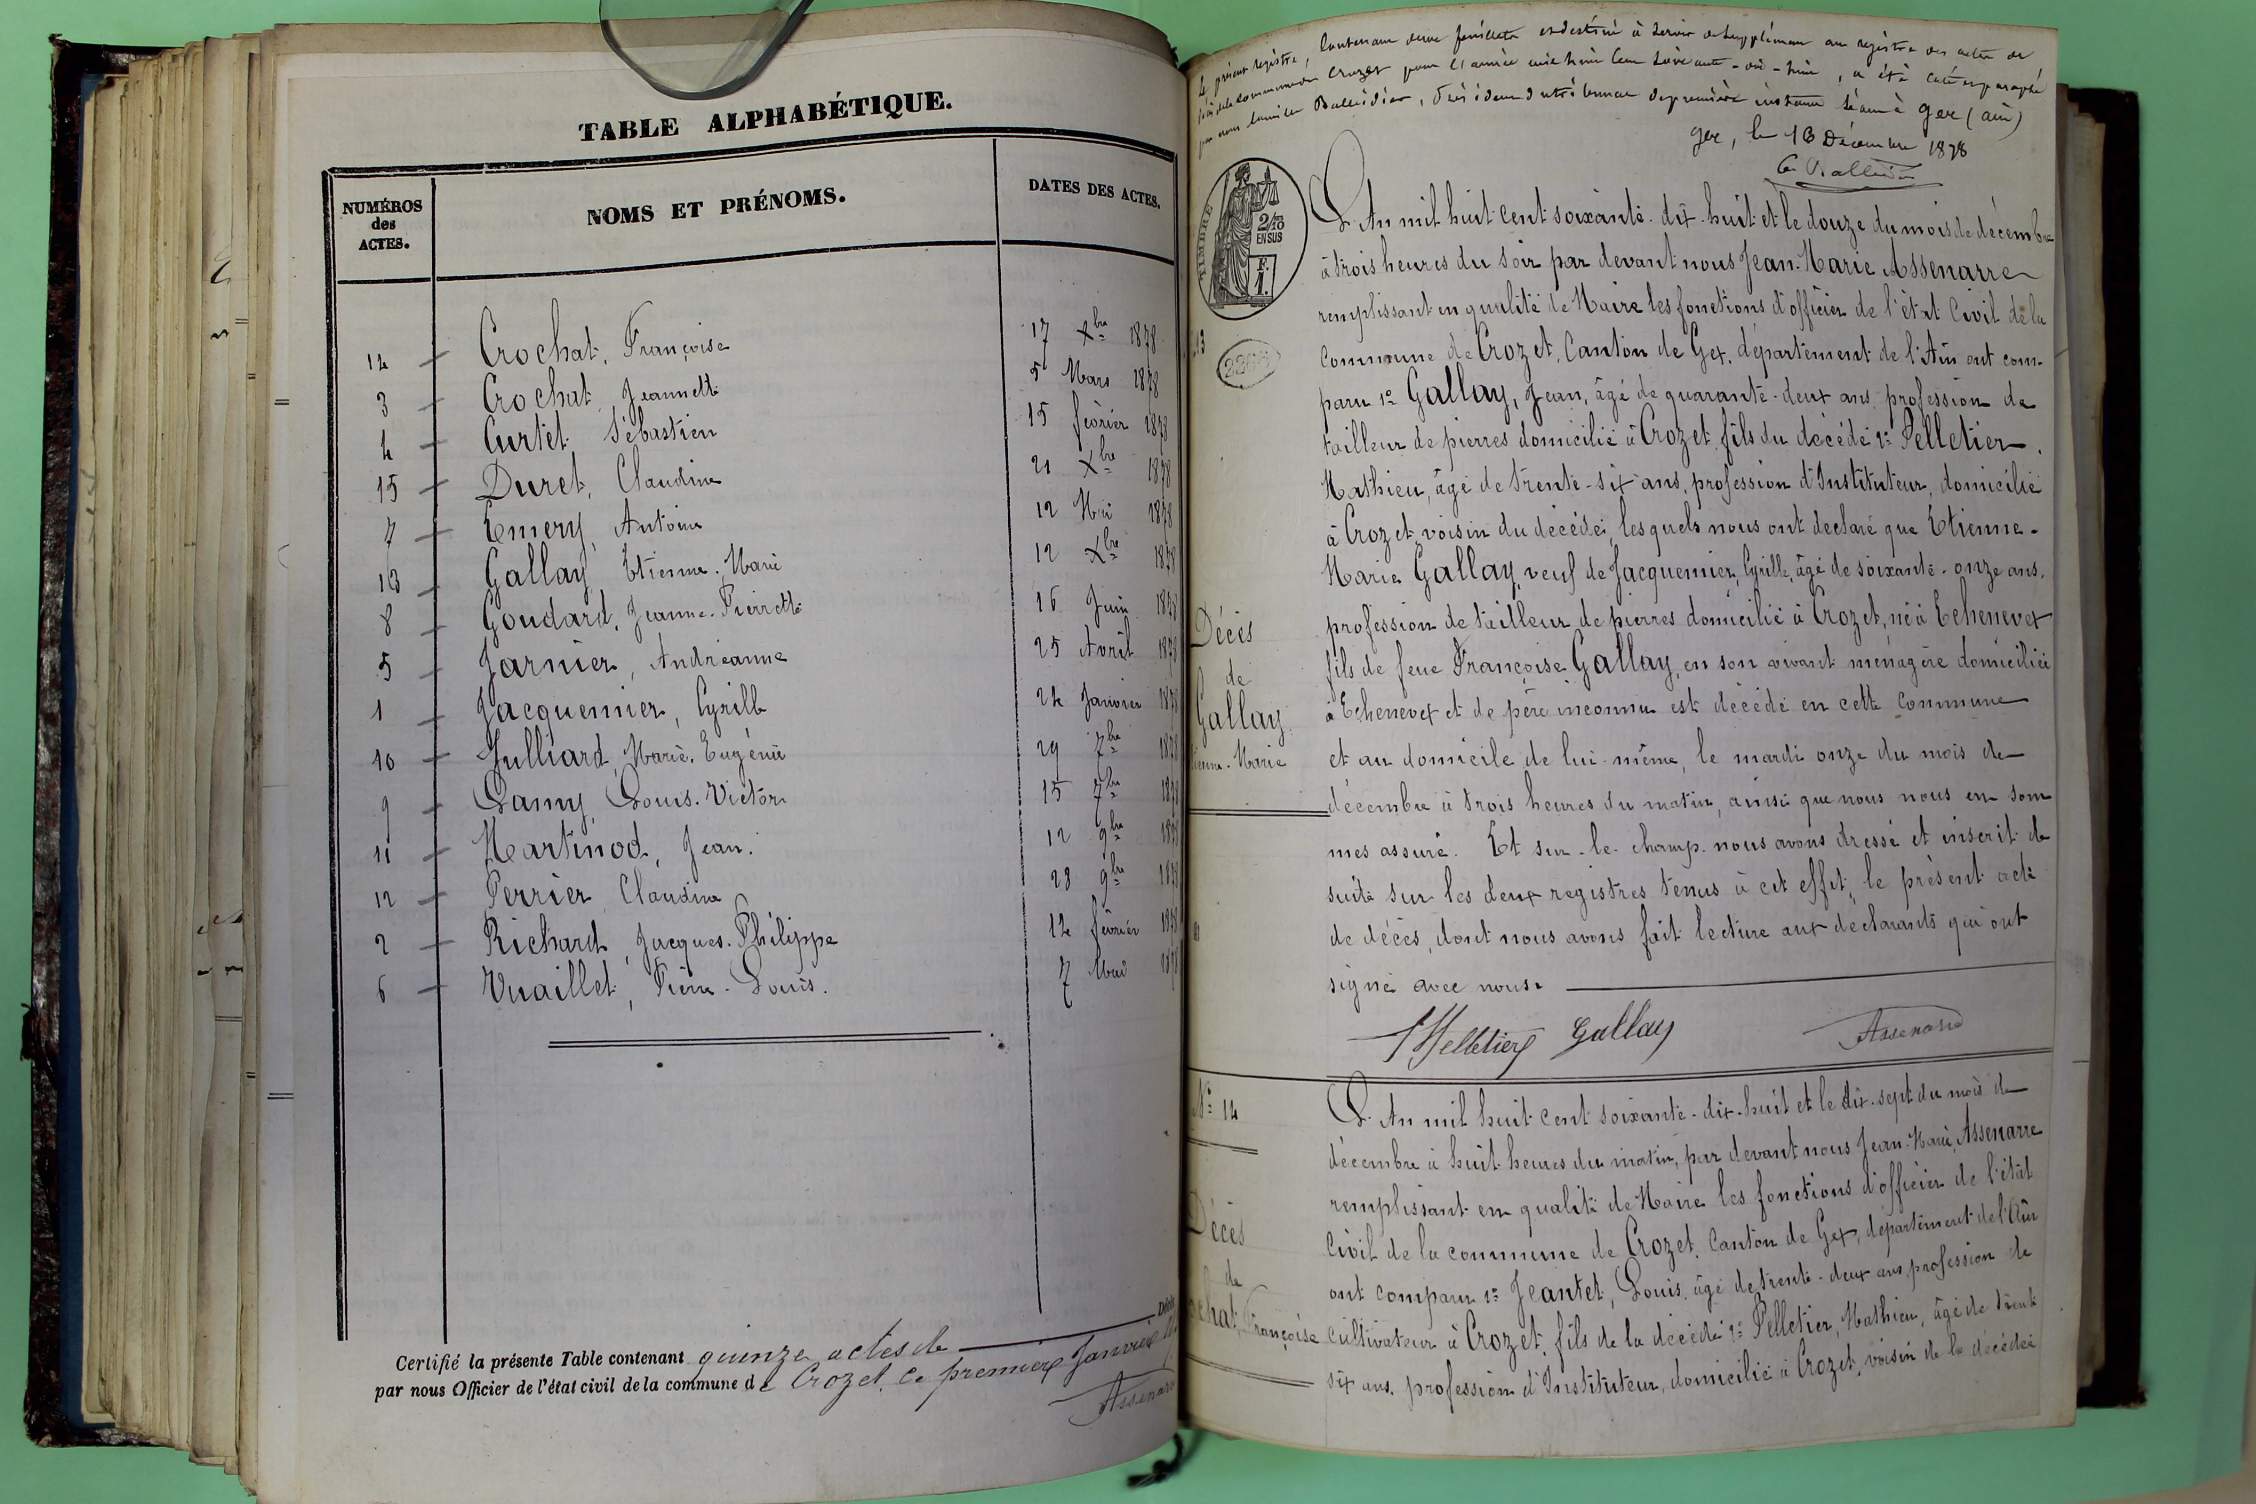 TABLE ALPHABÉTIQUE.
NUMÉROS des ACTES. NOMS ET PRÉNOMS. DATES DES ACTES.
14 — Crochat, Françoise 17 Xbre 1878
3 — Crochat, Jeannette 5 Mars 1878
4 — Curtet Sébastien 15 février 1878
15 — Duret, Claudine 21 Xbre 1878
7 — Emery, Antoine 12 Mai 1878
13 — Gallay, Etienne-Marie 12 Xbre 1878
8 — Goudard, Jeanne-Pierrette 16 Juin 1878
5 — Jarnier, Andréanne 25 Avril 1878
1 — Jacquemier, Cyrille 24 Janvier 1878
10 — Julliard, Marie-Eugénie 29 7bre 1878
9 — Lamy, Louis-Victor 15 7bre 1878
11 — Martinod, Jean. 12 9bre 1878
12 — Perrier, Claudine 28 9bre 1878
2 — Richard, Jacques-Philippe 12 février 1878
6 — Vuaillet, Pierre-Louis. 7 Mai 1878
Certifié la présente Table contenant quinze actes de Décès
par nous Officier de l'état civil de la commune de Crozet, ce premier Janvier
Assenarre
Le présent registre, contenant deux feuillets et destiné à servir de supplément au registre des actes de
décès de la commune de Crozet pour l'année mil huit cent soixante-dix-huit, a été coté et paraphé
par nous Camille Balleidier, Président du tribunal de première instance séant à Gex (ain)
Gex, le 16 Décembre 1878
TIMBRE
2/10
EN SUS
F.
1.
13
Décès
de
Gallay
Etienne-Marie
L'An mil huit cent soixante-dix-huit et le douze du mois de décembre
à trois heures du soir par devant nous Jean-Marie Assenarre
remplissant en qualité de Maire les fonctions d'officier de l'état Civil de la
Commune de Crozet, Canton de Gex, département de l'Ain ont com-
paru 1° Gallay, Jean, âgé de quarante-deux ans profession de
tailleur de pierres domicilié à Crozet, fils du décédé 2° Pelletier
Mathieu, âgé de trente-six ans, profession d'Instituteur, domicilié
à Crozet, voisin du décédé, lesquels nous ont declaré que Etienne-
Marie Gallay, veuf de Jacquemier, Cyrille, âgé de soixante-onze ans,
profession de tailleur de pierres domicilié à Crozet, né à Echenevex
fils de feue Françoise Gallay, en son vivant ménagère domiciliée
à Echenevex et de père inconnu est décédé en cette commune
et au domicile de lui-même, le mardi onze du mois de
décembre à trois heures du matin, ainsi que nous nous en som
mes assuré. Et sur-le-champ nous avons dressé et inscrit de
suite sur les deux registres tenus à cet effet, le présent acte
de décès, dont nous avons fait lecture aux déclarants qui ont
signé avec nous.
MPelletier Gallay Assenarre
N° 14
Décès
de
Crochat, Françoise
L'An mil huit cent soixante-dix-huit et le dix-sept du mois de
décembre à huit heures du matin, par devant nous Jean-Marie Assenarre
remplissant en qualité de Maire les fonctions d'officier de l'état
Civil de la commune de Crozet, Canton de Gex, département de l'Ain
ont comparu 1° Jeantet, Louis, âgé de trente-deux ans profession de
cultivateur à Crozet, fils de la décédé 2° Pelletier, Mathieu, âgé de trente
six ans, profession d'Instituteur, domicilié à Crozet, voisin de la décédée